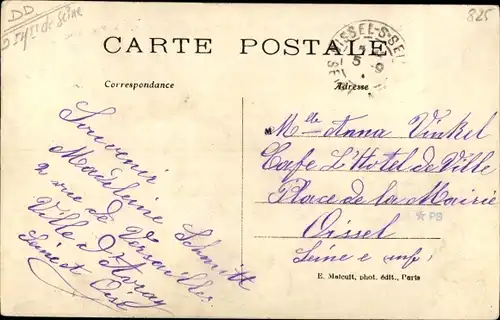 DD
825
CARTE POSTALE
Correspondance
Adresse
Souvenir
Madeleine Schmitt
2 rue de Versailles
Ville d'Avray
Seine et Oise
Mlle Anna Vinkel
Cafe L'Hotel de Ville
Place de la Mairie
Oissel
Seine e inf
*PB
E. Malcuit, phot. édit., Paris